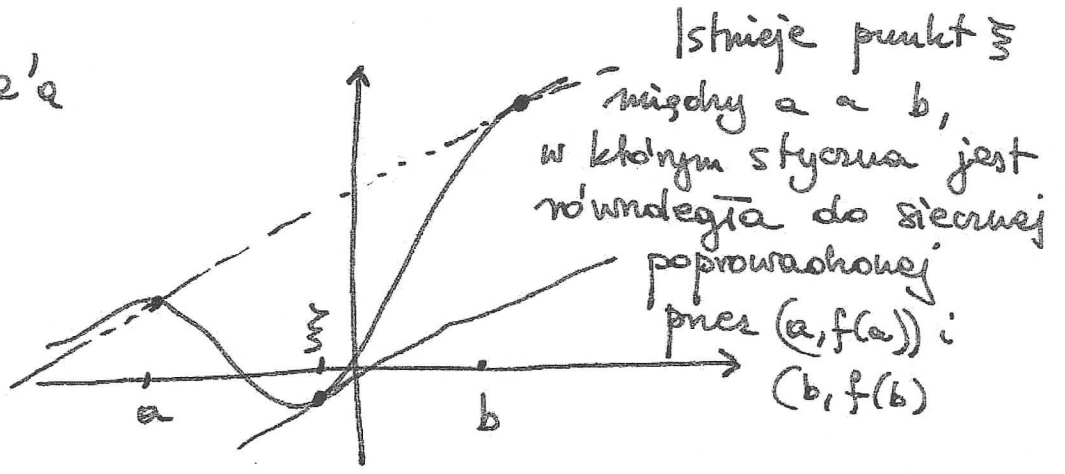 e'a
Istnieje punkt ξ
między a a b,
w którym styczna jest
równoległa do siecznej
poprowadzonej
przez (a, f(a)) i
(b, f(b)
ξ
a
b